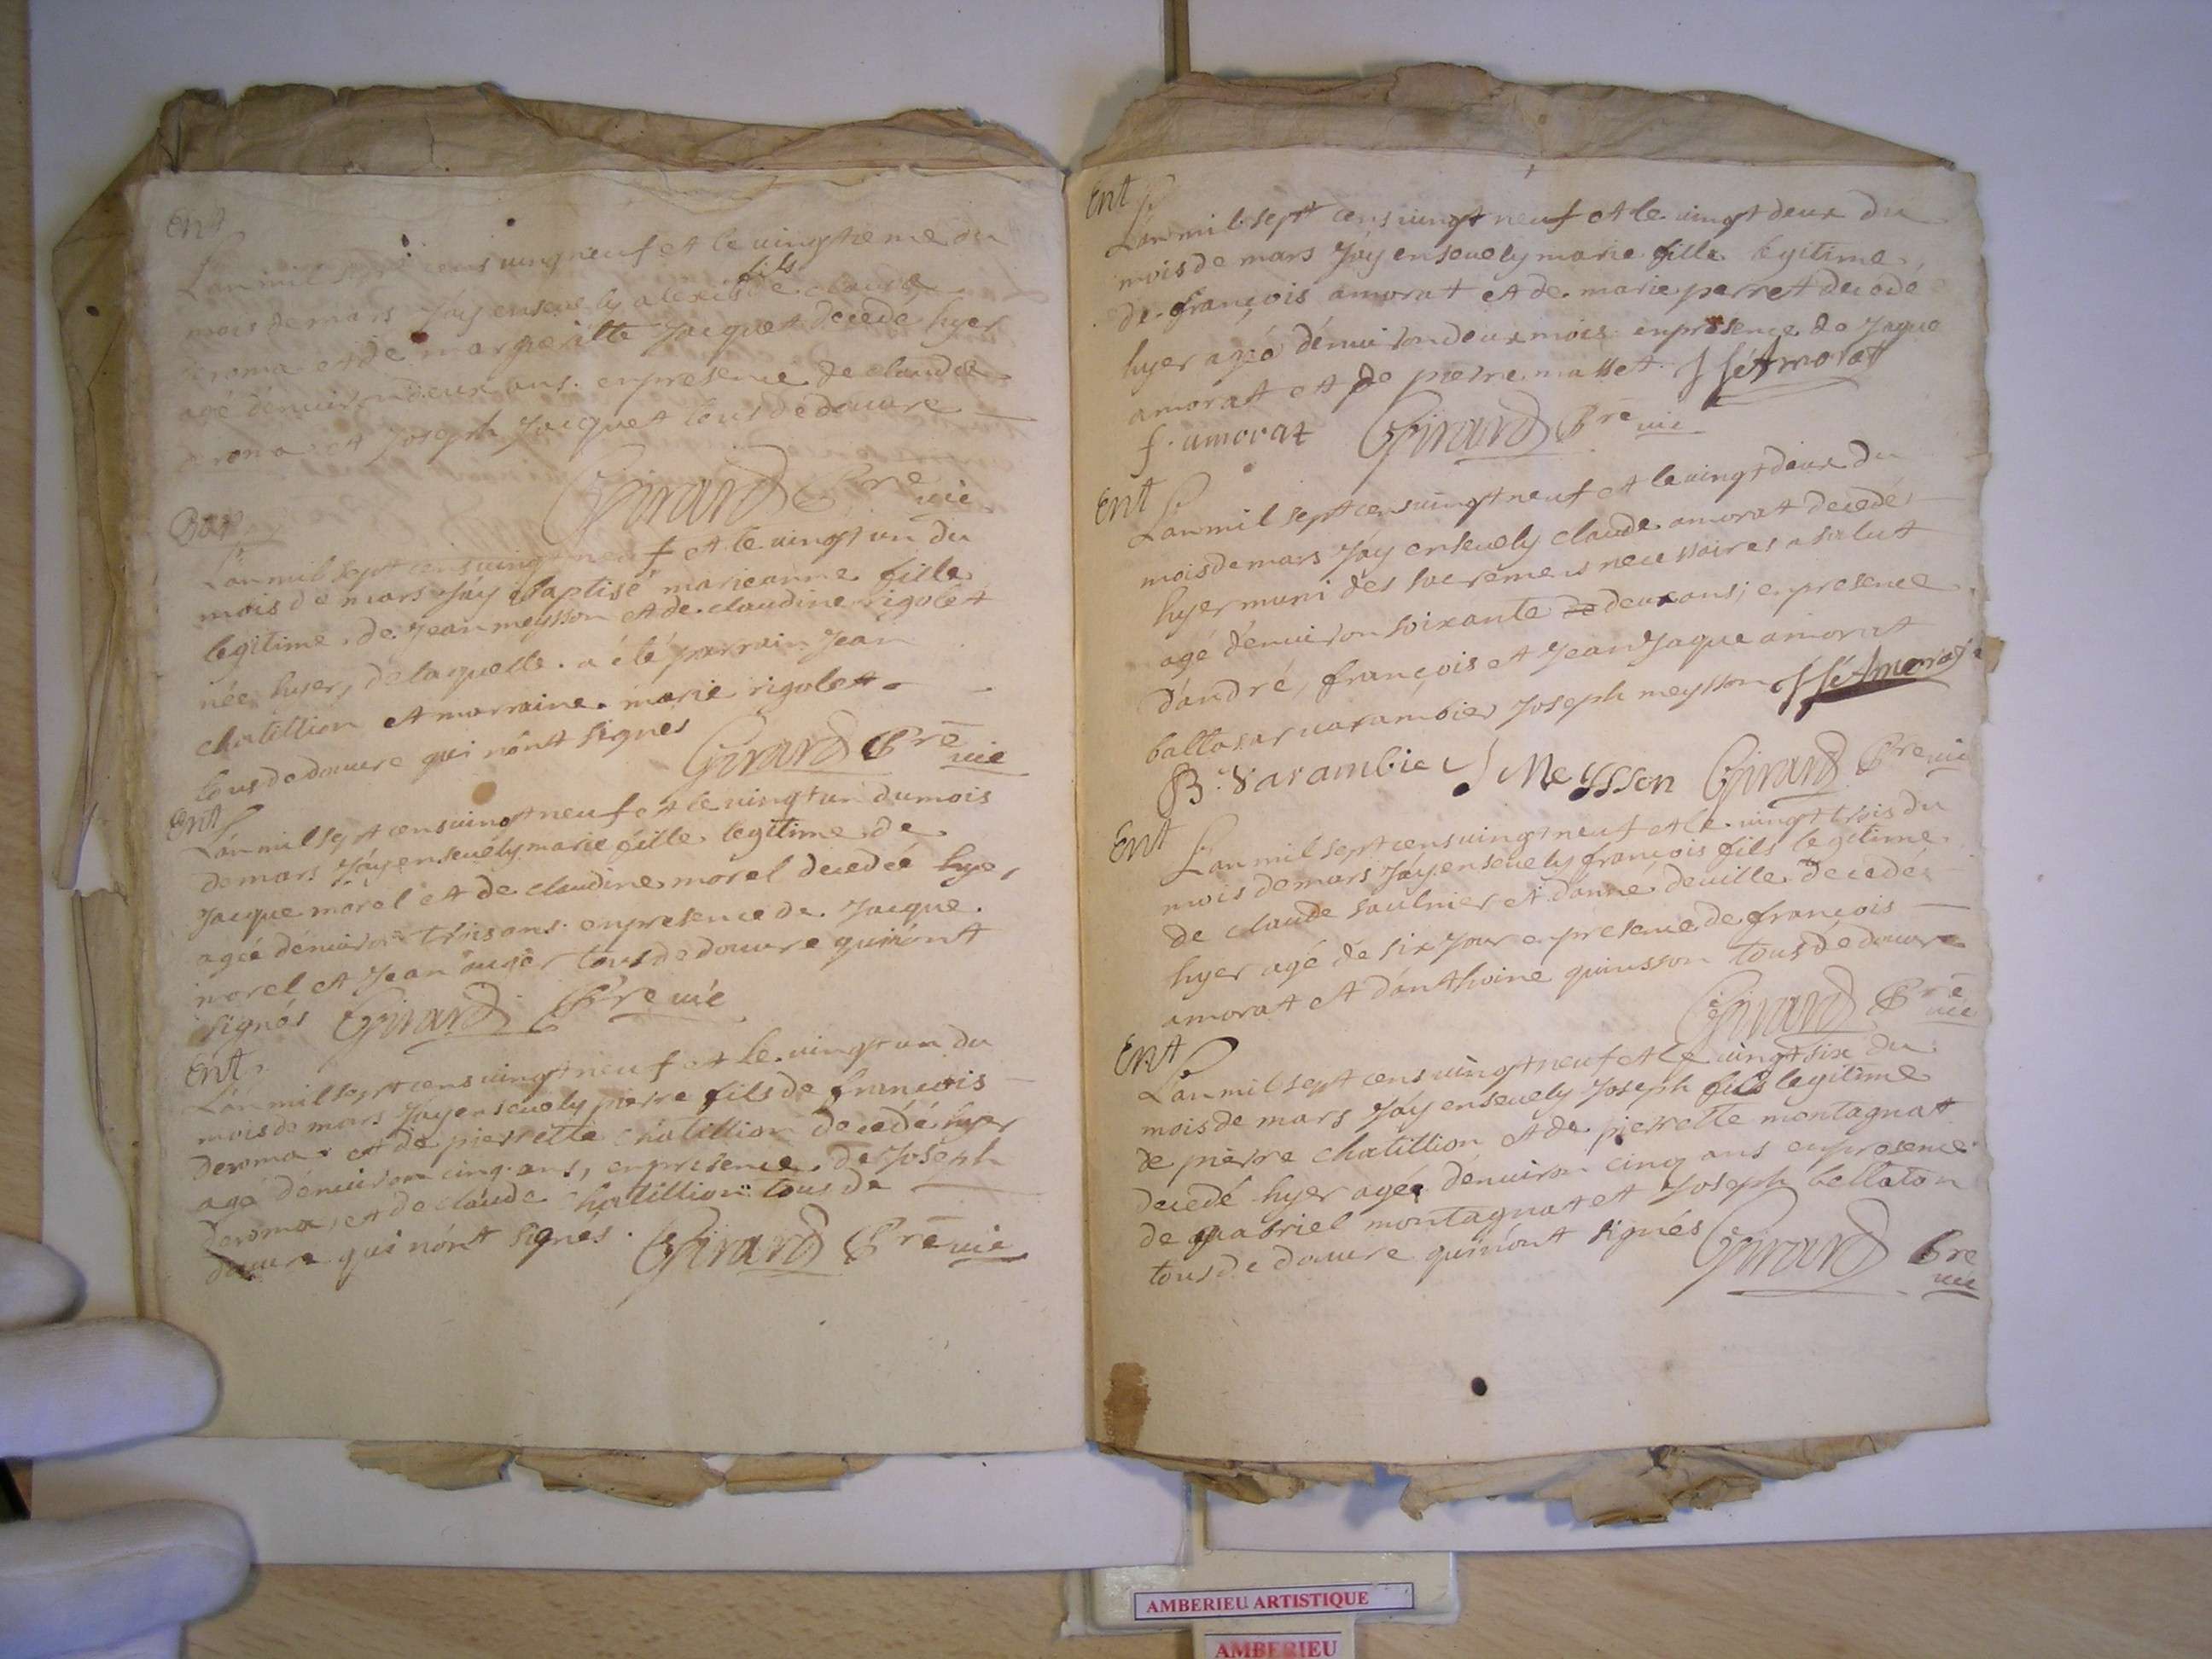 Ent
L'an mil sept cens ving neuf et le vingtieme du
mois de mars J'ay ensevely alexis fils de claude
deroma et de margueritte Jacquet decede hyer
agé d'environ deux ans. en presence de claude
deroma et Joseph Jacquet tous de douvre
Girard Pre vic
Bap
L'an mil sept cens vingt neuf et le vingt un du
mois de mars J'ay baptisé marieanne fille
legitime de Jean meysson et de claudine rigolet
née hyer, de laquelle a été parrain Jean
chatillion et marraine marie rigolet
tous de douvre qui n'ont signes
Girard Pre vic
Ent
L'an mil sept cens vingt neuf et le vingt un du mois
de mars J'ay ensevely marie fille legitime de
Jacque morel et de claudine morel decedeé hyer
ageé d'environ trois ans en presence de Jacque
morel et Jean auger tous de douvre qui n'ont
signés Girard Pre vic
Ent.
L'an mil sept cens vingt neuf et le vingt un du
mois de mars J'ay ensevely pierre fils de francois
deroma et de pierrette chatillion decedé hyer
agé d'environ cinq ans, en presence de Joseph
deroma, et de claude chatillion tous de
douvre qui n'ont signés. Girard Pre vic
Ent
L'an mil sept cens vingt neuf et le vingt deux du
mois de mars J'ay ensevely marie fille legitime
de françois amorat et de marie perret decedé
hyer ageé d'environ deux mois en presence de Jaque
amorat et de pierre masset. Amorat
f. amorat Girard Pre vic
Ent
L'an mil sept cens vingt neuf et le vingt deux du
mois de mars J'ay ensevely claude amorat decedé
hyer muni des sacremens necessaires a salut
agé d'environ soixante de deux ans; en presence
d'andré, françois et Jean Jaque amorat
baltasar varambier Joseph meysson Amorat
B. Varambier J Meysson Girard Pre vic
Ent
L'an mil sept cens vingt neuf et le vingt trois du
mois de mars J'ay ensevely françois fils legitime
de claude saulnier et d'anne deville decedé
hyer agé de six jour en presence de françois
amorat et d'anthoine quinsson tous de douvre
Girard Pre vic
Ent
L'an mil sept cens vingt neuf et le vingt six du
mois de mars J'ay ensevely Joseph fils legitime
de pierre chatillion et de pierrette montagnat
decedé hyer ageé d'environ cinq ans en presence
de gabriel montagnat et Joseph bellaton
tous de douvre qui n'ont signés Girard Pre vic
AMBERIEU ARTISTIQUE
AMBERIEU